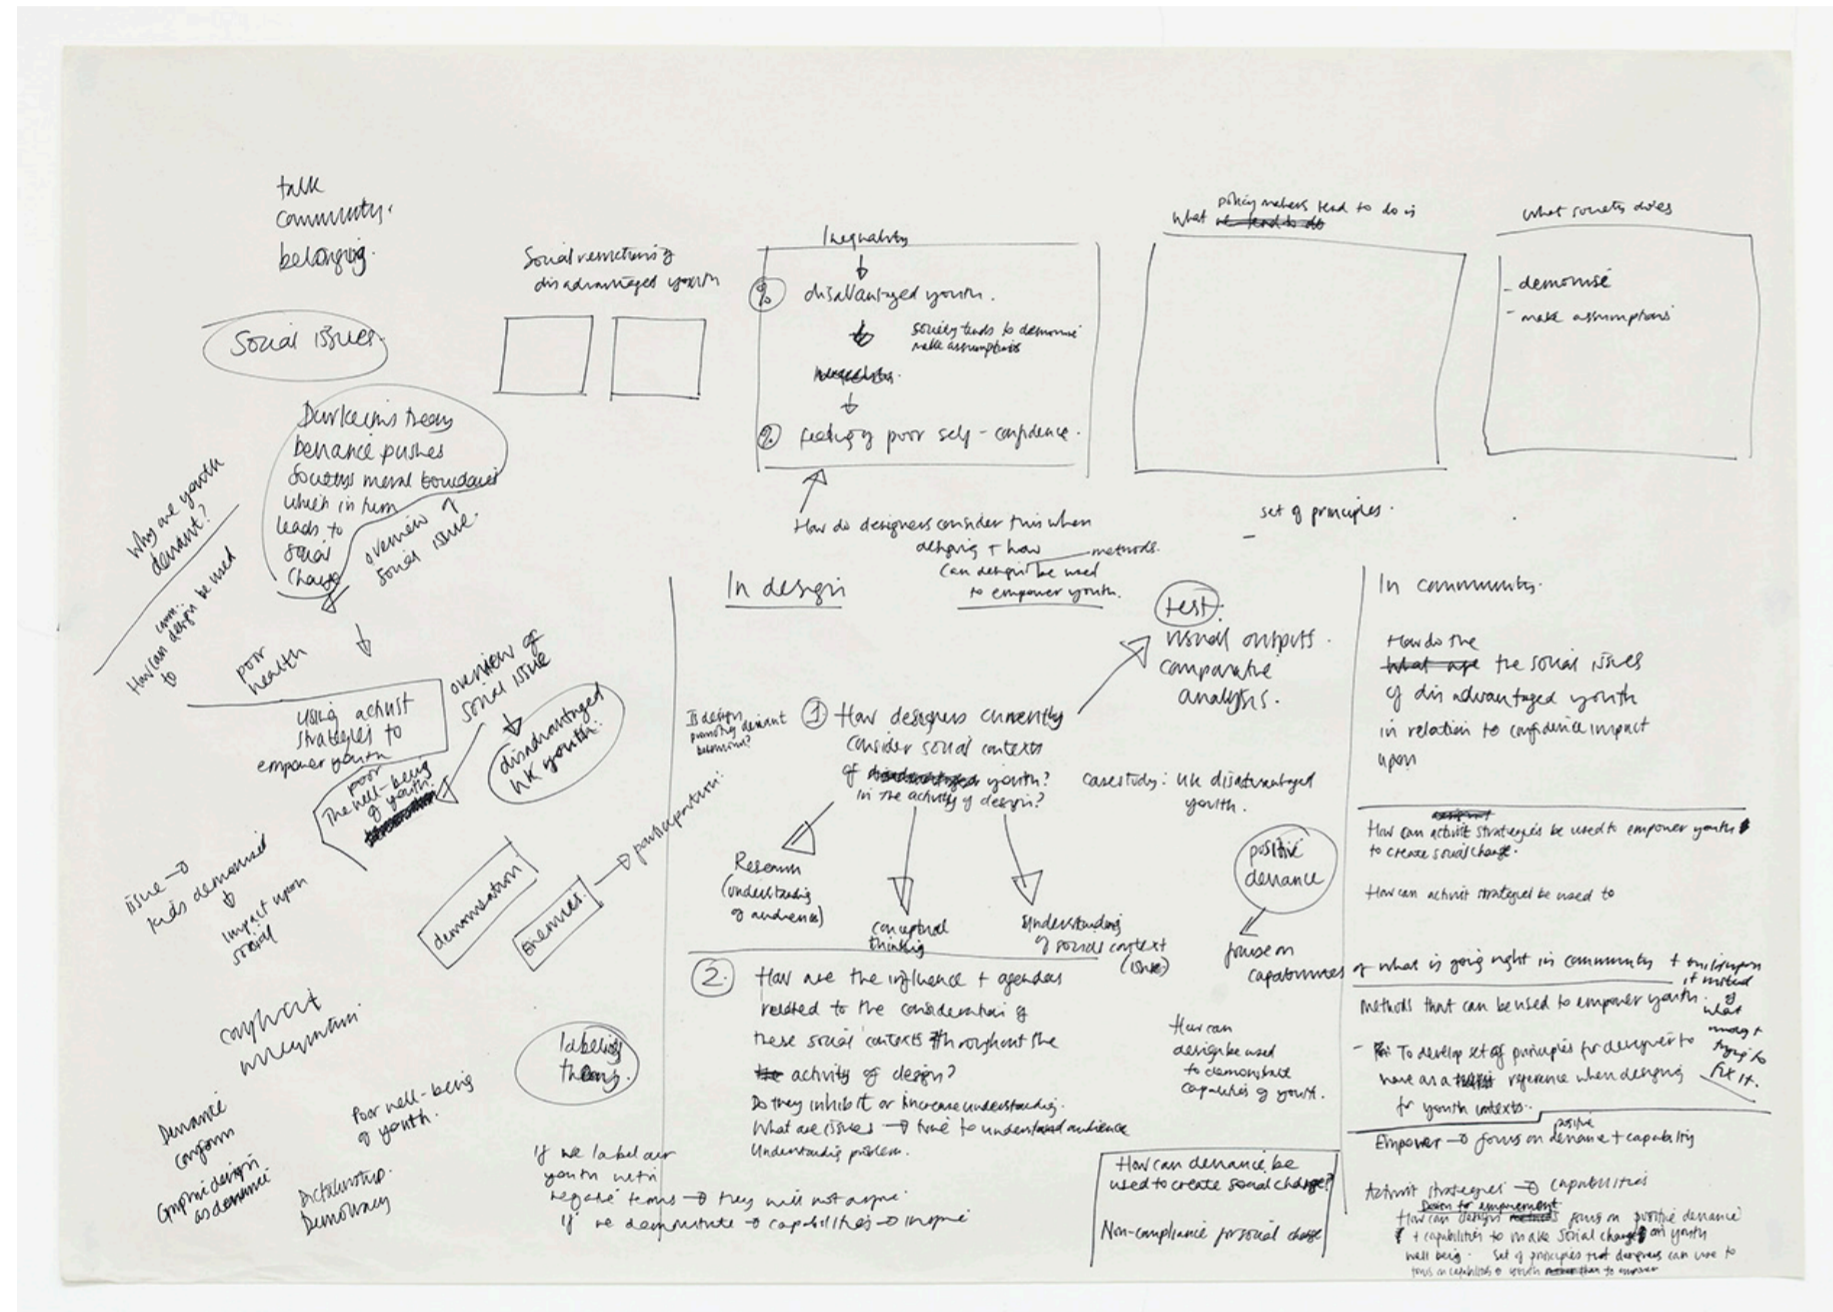 talk
community.
belonging.
Social issues
Durkeims theory
Deviance pushes
societys moral boundaries
which in turn
leads to
social
change
overview
social issue.
Why are youth
deviant?
How can design be used
to
poor
health
using activist
strategies to
empower youth
overview of
social issue
disadvantaged
UK youth.
poor
The well-being
of youth.
issue →
kids demonised
impact upon
social
demonisation
enemies.
participation.
Deviance
conforms
Graphic design
as deviance
Poor well-being
of youth.
Dictatorship
Democracy
labeling
theory.
If we label our
youth with
negative terms → they will not aspire.
If we demonstrate → capabilities → inspire
Social
disadvantaged youth
Inequality
disadvantaged youth.
society tends to demonise
make assumptions
feeling of poor self-confidence.
How do designers consider this when
designing + how
methods.
can design be used
to empower youth.
policy makers tend to do is
what we tend to do
what society does
- demonise
- make assumptions
set of principles.
In design
test:
visual outputs.
comparative
analysis.
Is design
promoting deviant
behaviour?
1 How designers currently
consider social contexts
of disadvantaged youth?
in the activity of design?
case study: UK disadvantaged
youth.
Research
(understanding
of audience)
conceptual
thinking
Understanding
of social context
(issue)
positive
deviance
focus on
capabilities of what is going right in community
2. How are the influence + agendas
related to the consideration of
these social contexts throughout the
the activity of design?
Do they inhibit or increase understanding.
What are issues → time to understand audience
Understanding problem.
How can
design be used
to demonstrate
capabilities of youth.
How can deviance be
used to create social change?
Non-compliance for social change
In community.
How do the
what are the social issues
of disadvantaged youth
in relation to confidence impact
upon
How can activist strategies be used to empower youth
to create social change.
How can activist strategies be used to
+ build upon
it instead
of
what
wrong +
trying to
fix it.
methods that can be used to empower youth.
- To develop set of principles for designer to
have as a reference when designing
for youth contexts.
positive
Empower → focus on deviance + capability
Activist strategies → capabilities
How can design focus on positive deviance
+ capabilities to make social change on youth
well being. set of principles that designers can use to